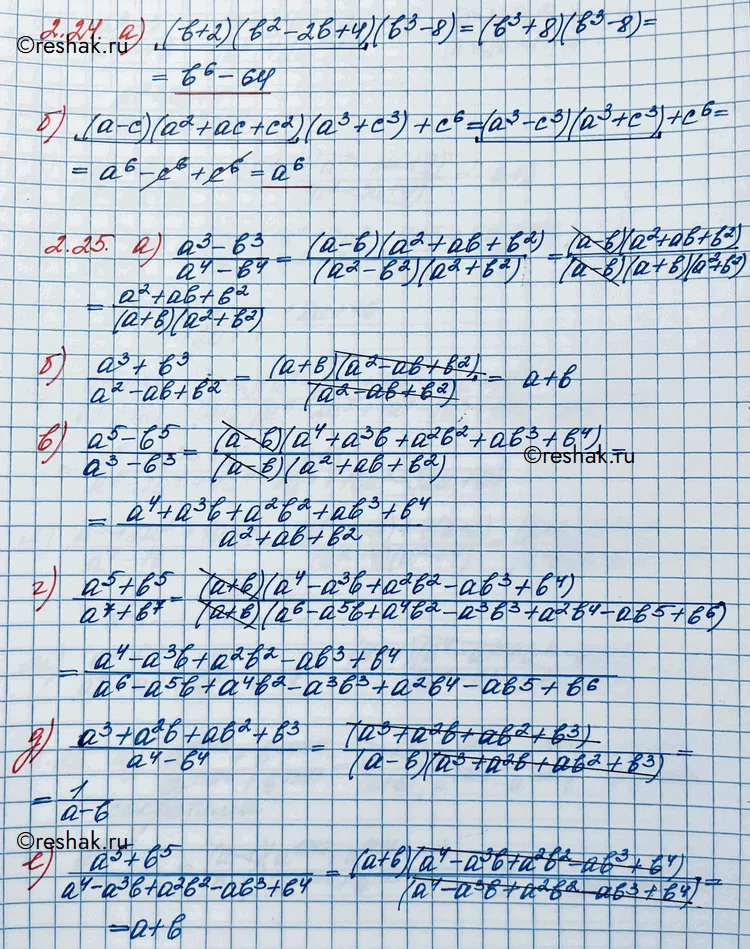 2.24. а) (b+2)(b²-2b+4)(b³-8) = (b³+8)(b³-8) =
©reshak.ru
= b⁶-64
б) (a-c)(a²+ac+c²)(a³+c³)+c⁶ = (a³-c³)(a³+c³)+c⁶ =
= a⁶-c⁶+c⁶ = a⁶
2.25. а) (a³-b³)/(a⁴-b⁴) = ((a-b)(a²+ab+b²))/((a²-b²)(a²+b²)) = ((a-b)(a²+ab+b²))/((a-b)(a+b)(a²+b²))
= (a²+ab+b²)/((a+b)(a²+b²))
б) (a³+b³)/(a²-ab+b²) = ((a+b)(a²-ab+b²))/(a²-ab+b²) = a+b
в) (a⁵-b⁵)/(a³-b³) = ((a-b)(a⁴+a³b+a²b²+ab³+b⁴))/((a-b)(a²+ab+b²)) =
©reshak.ru
= (a⁴+a³b+a²b²+ab³+b⁴)/(a²+ab+b²)
г) (a⁵+b⁵)/(a⁷+b⁷) = ((a+b)(a⁴-a³b+a²b²-ab³+b⁴))/((a+b)(a⁶-a⁵b+a⁴b²-a³b³+a²b⁴-ab5+b⁶))
= (a⁴-a³b+a²b²-ab³+b⁴)/(a⁶-a⁵b+a⁴b²-a³b³+a²b⁴-ab5+b⁶)
д) (a³+a²b+ab²+b³)/(a⁴-b⁴) = (a³+a²b+ab²+b³)/((a-b)(a³+a²b+ab²+b³)) =
= 1/(a-b)
©reshak.ru
е) (a⁵+b⁵)/(a⁴-a³b+a²b²-ab³+b⁴) = ((a+b)(a⁴-a³b+a²b²-ab³+b⁴))/(a⁴-a³b+a²b²-ab³+b⁴) =
= a+b